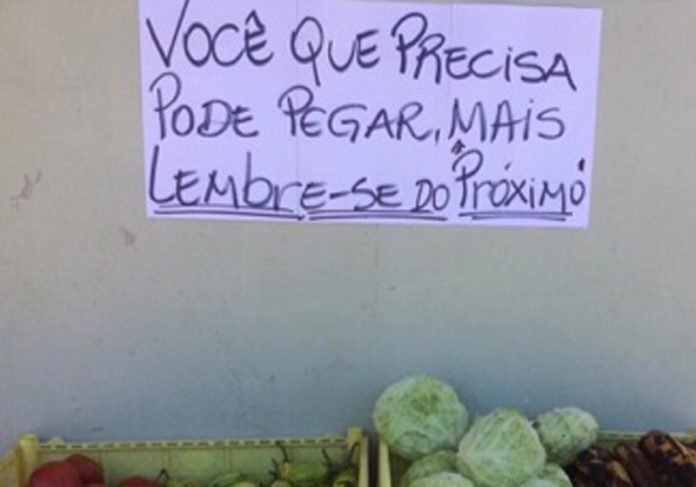 VOCÊ QUE PRECISA
PODE PEGAR, MAIS
LEMBRE-SE DO "PRÓXIMO"